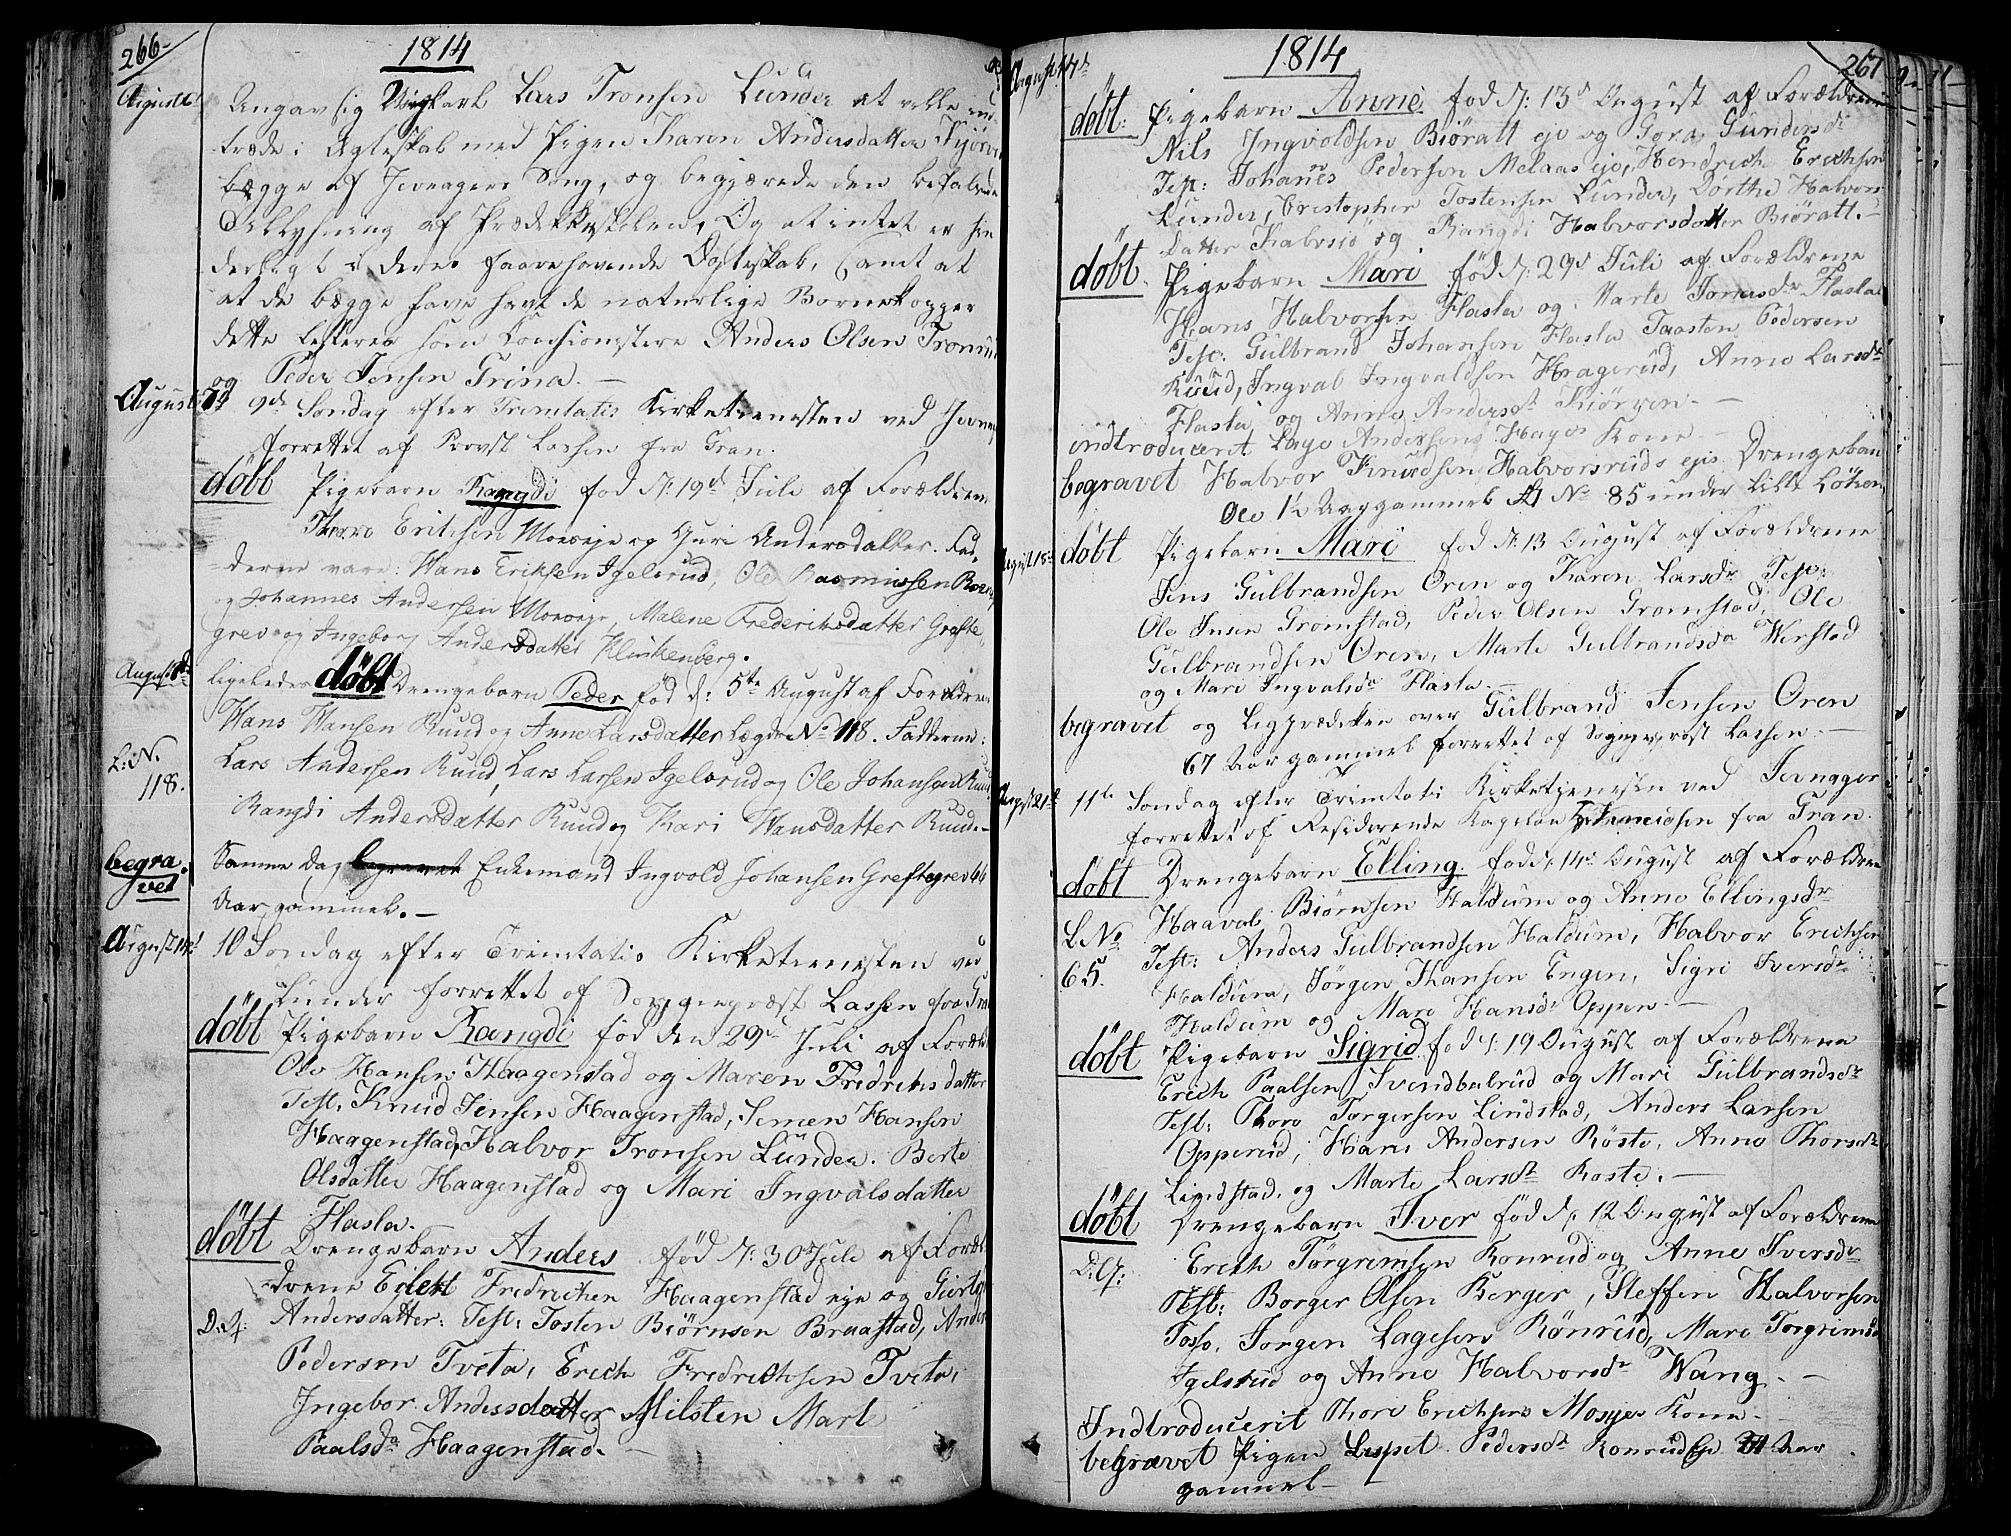 266-
1814
August 6
Angav sig Ungkarl Lars Tronsen Lunder at ville ind-
træde i Ægteskab med Pigen Karen Andersdatter
begge af Jevnager Sogn, og begjærede den befalede
Tillysning af Prædikestolen, Og at intet er hin
derligt i deres forehavende Ægteskab, samt at
at de begge have havt de naturlige Bornekopper
dette testerer som Cautionister Anders Olsen Tronrud
og Peder Jensen Grina. —
August 7d 9de Søndag efter Trinitatis Kirketienesten ved Jevnager
forrettet af Provst Lassen fra Gran.
döbt Pigebarn Rangdi fød d: 19de Juli af Forældrene
Thoro Erichsen Moeseje og Guri Andersdatter. Fad-
derne vare: Hans Eriksen Igelsrud, Ole Rasmussen
og Johannes Andersen Moeseje, Malene Frederiksdatter Grefte
grev og Ingeborg Andersdatter Klinkenberg.
August ligeledes döbt Drengebarn Peder fød d: 5te August af Forældrene
Hans Hansen Ruud og Anne Larsdatter Lægds No 118. Fadderne:
L: N.
118.
Lars Andersen Ruud, Lars Larsen Igelsrud og Ole Johansen Ruud
Rangdi Andersdatter Ruud og Kari Hansdatter Ruud. —
begra
vet
Samme Dag begravet Enkemand Ingvold Johansen Greftegrev 66
Aar gammel. —
August 14d 10 Søndag efter Trinitatis Kirketienesten ved
Lunder forrettet af Sogneprest Lassen fra Gran
döbt Pigebarn Rangdi fød den 29de Juli af Foræld
Ole Hansen Haagenstad og Maren Fredrichsdatter
Test. Knud Jensen Haagenstad, Simen Hansen
Haagenstad, Halvor Tronsen Lunder. Berte
Olsdatter Haagenstad og Mari Ingvalsdatter
Flasla.
döbt Drengebarn Anders fød d: 30 Juli af Foræl
drene Eilert Fredrichsen Haagenstad eje og Giertru
Andersdatter: Test: Tosten Biørnsen Braastad, Anders
Pedersen Tveta, Erich Fredrichsen Tveta,
Ingebor Andersdatter Milsten Marte
Paalsdr Haagenstad. —
267
1814
August 14d
döbt: Pigebarn Anne fød d: 13d August af Forældrene
Nils Ingvoldsen Biøratt eje og Gora Gundersdr
Test: Johanes Pedersen Melaas eje, Hendrich Erichsen
Lunder, Christopher Tostensen Lunder, Dorthe Halvors
datter Kalvsjø og Rangdi Halvorsdatter Biøratt. —
döbt. Pigebarn Mari fød d: 29d Juli af Forældrene
Hans Halvorsen Flasla og Marte Jonasdr Flasla
Test: Gulbrand Johansen Flasla Taasten Pedersen
Ruud, Ingval Ingvaldsen Hragerud, Anne Larsdr
Flasla og Anne Andersdr Kiørven. —
indtroduceret Lage Andersens Hages Kone
begravet Halvor Knudsen Halvorsruds ejes Drengebarn
Ole 1½ Aar gammel No 85 under Litt Løken
döbt Pigebarn Mari fød d: 13 August af Forældrene
Jens Gulbrandsen Oren og Karen Larsdr Test:
Ole Jensen Gromstad, Peder Olsen Gromstad, Ole
Gulbrandsen Oren, Marte Gulbrandsda Werstad
og Mari Ingvalsdr Flasla. —
begravet og Ligprædiken over Gulbrand Jensen Oren
67 Aar gammel forrettet af Sogneprest Lassen. —
August 21d 11te Søndag efter Trinitatis Kirketjenesten ved Jevnager
forrettet af Residerende Kapelan fra Gran.
döbt Drengebarn Elling fød d: 14d August af Forældrene
Haaval Biørnsen Haldum og Anne Ellingsdr
L No
65.
Test: Anders Gulbrandsen Haldum, Halvor Erichsen
Haldum, Jørgen Hansen Engen, Sigri Iversdr
Haldum og Mari Hansdr Oppen. —
döbt Pigebarn Sigrid fød d: 19 August af Forældrene
Erich Paalsen Svendbalrud og Mari Gulbrandsdr
Test: Thoro Torgersen Lindstad, Anders Larsen
Opperud, Hans Andersen Röste, Anne Thorsdr
Lindstad. og Marte Larsdr Roste. —
döbt Drengebarn Iver fød d: 12 August af Forældrene
Erich Torgrimsen Ronrud og Anne Iversdr
Test: Borger Olsen Berger, Steffen Halvorsen
Toso, Jorgen Lagesen Rönrud, Mari Torgrimsd
Igelsrud og Anne Halvorsdr Wang. —
Indtroducerit Thore Erichsens Moesjes Kone —
begravet Pigen Lispet Pedersdr Ronrud 21 Aar
gammel —